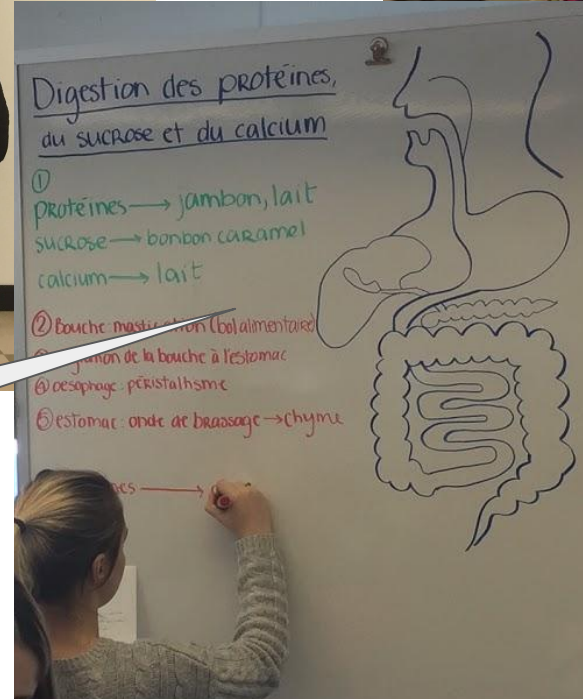 Digestion des protéines,
du sucrose et du calcium
①
protéines → jambon, lait
sucrose → bonbon caramel
calcium → lait
② Bouche: mastication (bol alimentaire)
de la bouche à l'estomac
④ oesophage: péristaltisme
⑤ estomac: onde de brassage → chyme
→